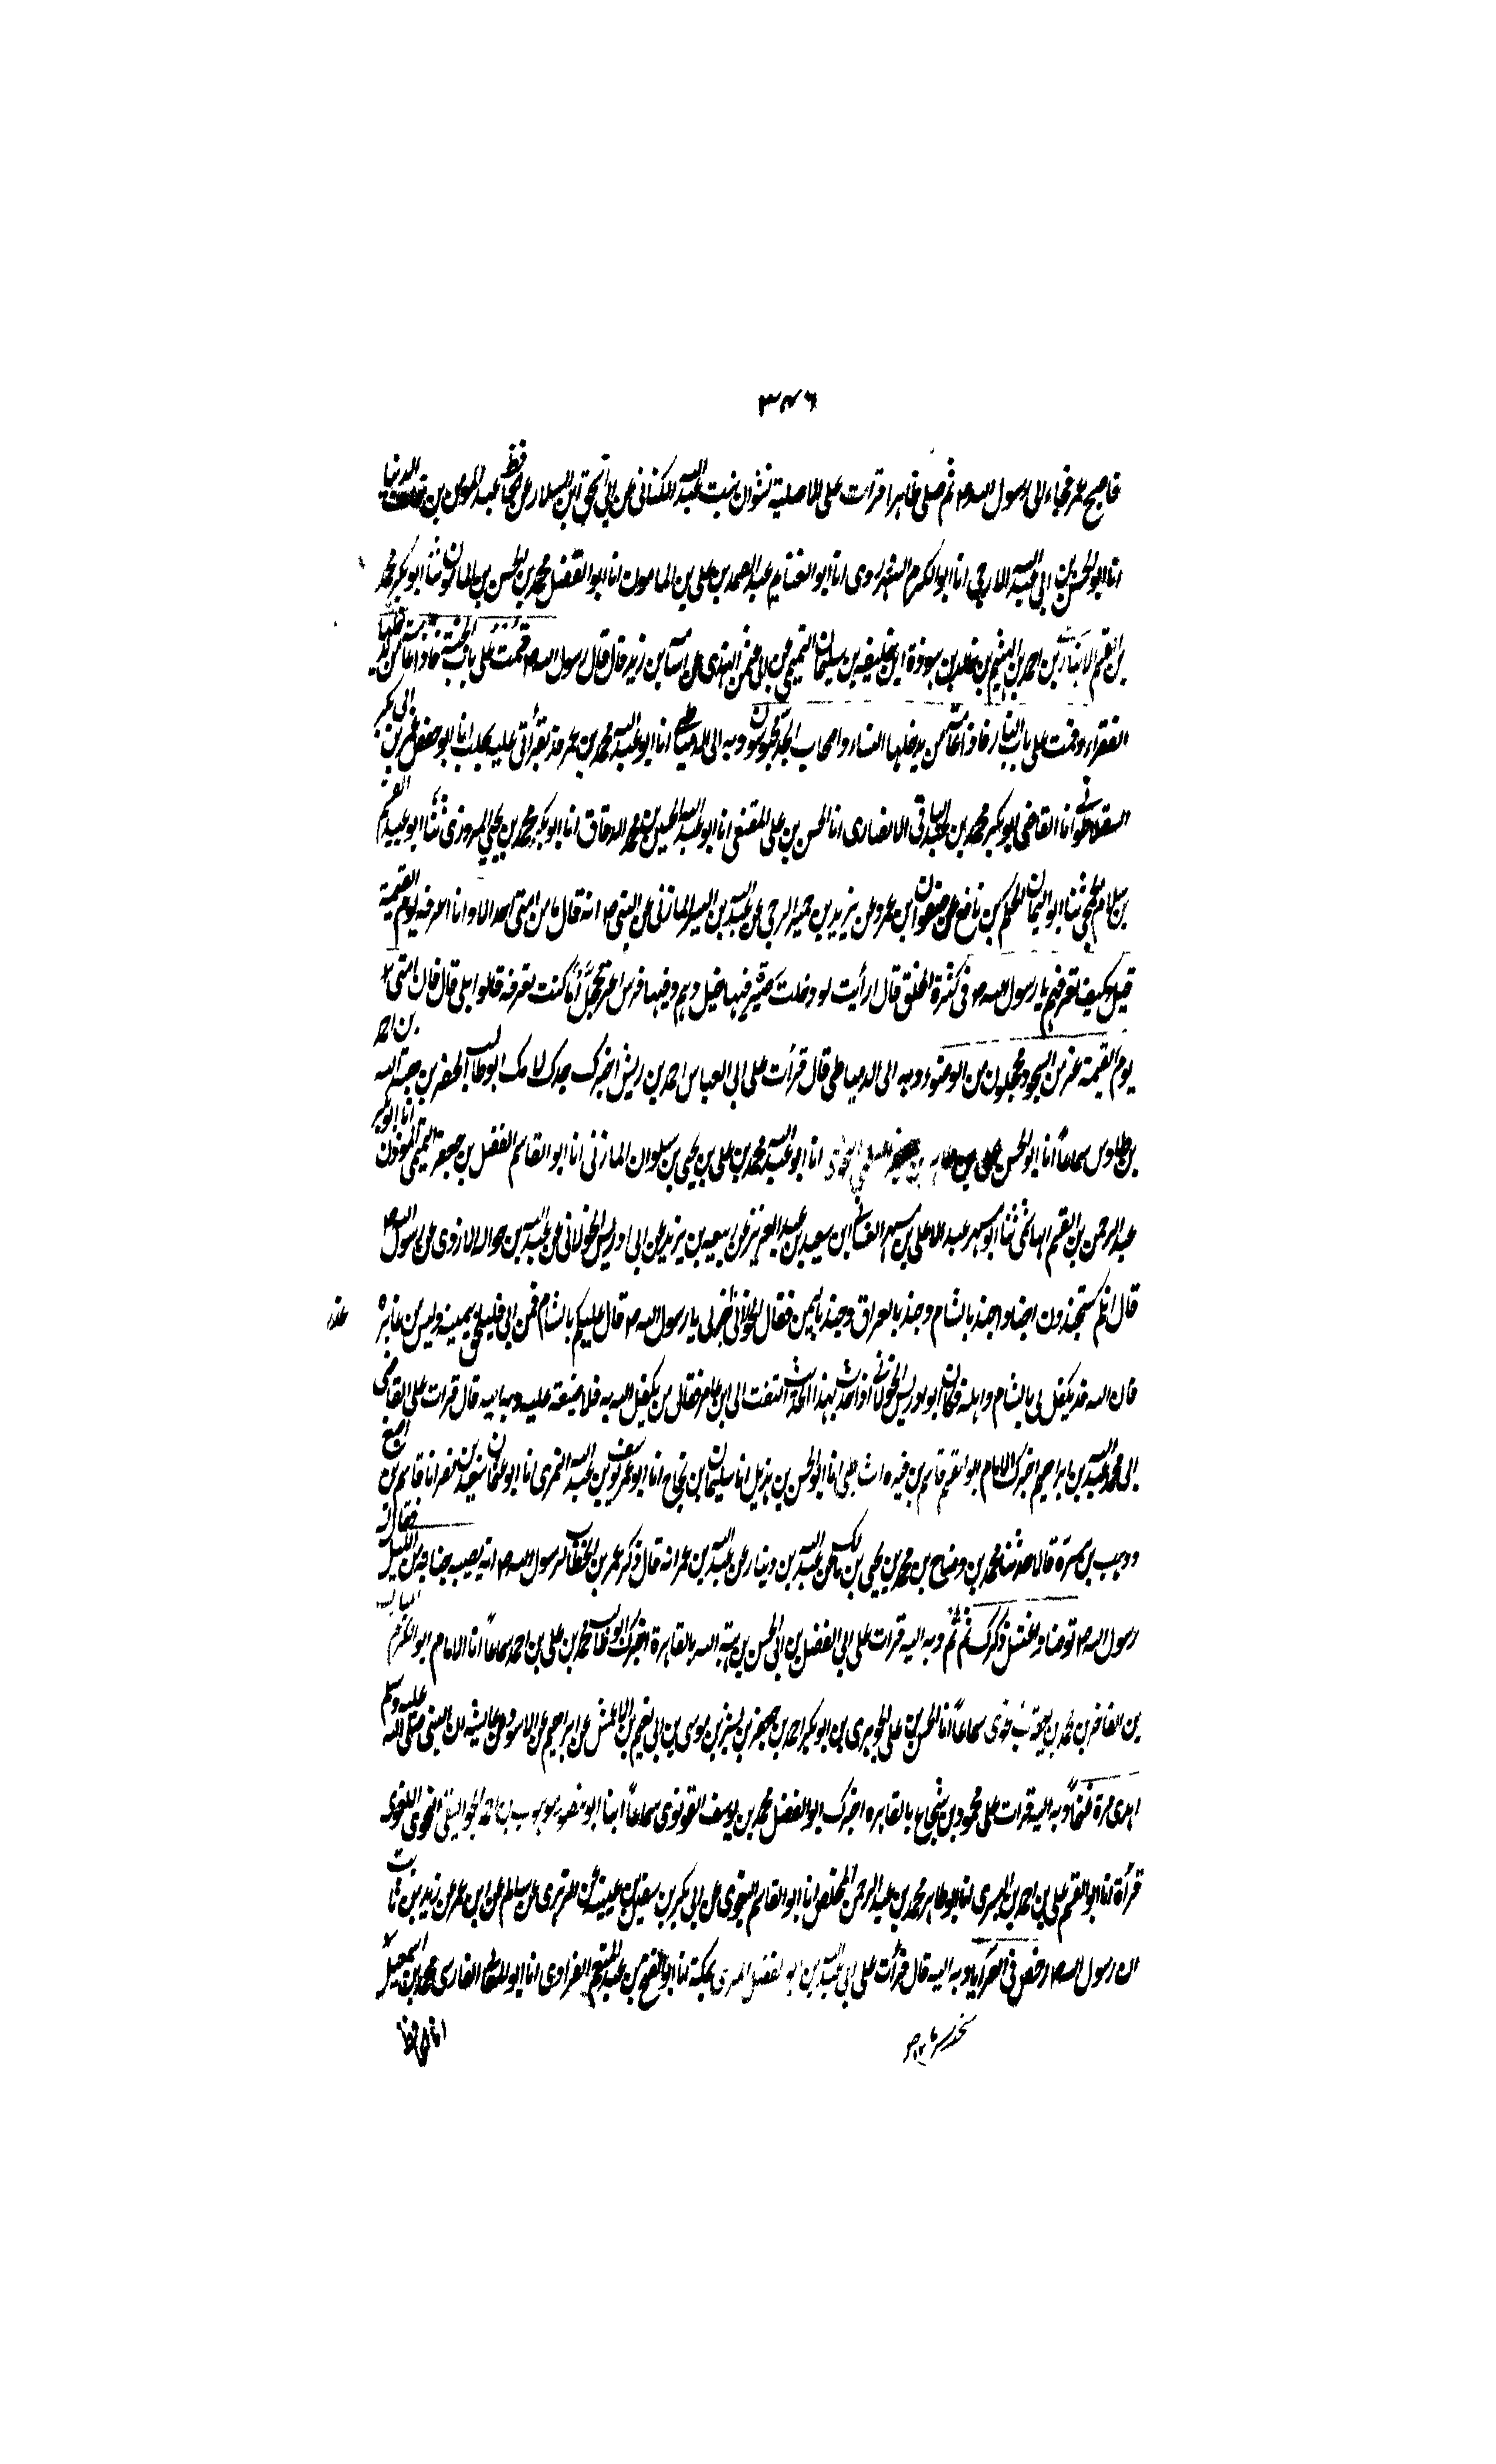 ٣٤٦
فاصبح عمر فجاء الى رسول الله ص ثم صلى ظاهرا قرات على الاصلية نشوان بنت عبد الله الكنانى عن ابى اسحق ابن السلار عن الحافظ عبد المومن بن خلف الدمياطى
انا ابو الحسن بن ابى عبد الله الازجى انا ابو الكرم الشهرزورى انا ابو الغنايم عبد الصمد بن على بن المامون انا ابو الفضل محمد بن الحسن بن المامون ثنا ابو بكر محمد
بن القسم الانبارى بن احمد بن الهيثم بن خالد بن هوذة ابن خليفة بن سليمان التيمى عن ابى عثمن النهدى عن اسامة بن زيد قال قال رسول الله ص قمت على باب الجنة فاذا عامة من يدخلها
الفقراء وقمت على باب النار فاذا عامة من يدخلها النساء واصحاب الجد محبوسون وبه الى الدمياطى انا ابو عبد الله محمد بن عمر بقرأتى عليه بحلب انا ابو حفص عمر بن ابى بكر
انا القاضى ابو بكر محمد بن عبد الباقى الانصارى انا الحسن بن على المقنعى انا ابو عبد الله الحسين بن محمد الدقاق انا ابو بكر محمد بن يحيى المروزى ثنا ابو عبيد القسم
بن سلام ثنا ابو اليمان الحكم بن نافع عن صفوان ابن عمرو عن يزيد بن خمير الرحبى عن عبد الله بن بسر المازنى عن النبى ص انه قال ما من امتى احد الا وانا اعرفه يوم القيمة
قيل وكيف تعرفهم يا رسول الله ص فى كثرة الخلق قال ارأيت لو دخلت صيرة فيها خيل دهم وفيها فرس اغر محجل أما كنت تعرفه قالوا بلى قال فان امتى
يوم القيمة غر من السجود محجلون من الوضوء وبه الى الدمياطى قال قرأت على ابى العباس احمد بن اخبرك جدك لامك ابو طالب الخضر بن هبة الله بن احمد
بن طاوس سماعاً انا ابو الحسن على بن طاهر بن جعفر السلمى النحوى انا ابو عبد الله محمد بن على بن يحيى بن سلوان المازنى انا ابو القاسم الفضل بن جعفر التميمى المؤذن انا ابو بكر
عبد الرحمن بن القسم الهاشمى ثنا ابو مسهر عبد الاعلى بن مسهر الغسانى ابن سعيد بن عبد العزيز عن ربيعه بن يزيد عن ابى ادريس الخولانى عن عبد الله بن حواله الازدى عن رسول الله ص
قال انكم ستجندون اجنادا جند بالشام وجند بالعراق وجند باليمن فقال الحوالى خر لى يا رسول الله ص قال عليكم بالشام فمن ابى فليلحق بيمينه وليسق من غدره
غدره
فان الله قد تكفل لى بالشام واهله فكان ابو ادريس الخولانى اذا حدث بهذا الحديث التفت الى ابن عامر فقال من تكفل الله به فلا ضيعة عليه وبه اليه قال قرات على القاضى
ابى محمد عبد الله بن ابراهيم اخبرك الامام ابو القسم قاسم بن فيره الشاطبى انا ابو الحسن بن هذيل انا سليمان بن نجاح انا ابو عمر يوسف بن عبد الله النمرى انا ابو عثمان سعيد بن نصر انا قاسم بن اصبغ
ووهب بن مسرة قالا حدثنا محمد بن وضاح بن محمد بن يحيى بن مالك عن عبد الله بن دينار عن عبد الله بن عمر انه قال ذكر عمر بن الخطاب لرسول الله ص انه يصيبه جنابة من الليل فقال له
رسول الله ص توضأ واغتسل ذكرك ثم نم وبه اليه قرات على ابى الفضل بن ابى الحسن بن هبة الله بالقاهرة اخبرك ابو طالب محمد بن على بن احمد سماعاً انا الامام ابو الكرم المبارك
بن الفاخر بن محمد بن يعقوب النحوى سماعاً انا الحسن بن على الجوهرى بن ابو بكر احمد بن جعفر بن بشر بن موسى بن ابى نعيم بن الاعمش عن ابراهيم عن الاسود عن عايشة ان النبى صلى الله عليه وسلم
اهدى مرة غنماً وبه اليه قرات على محمود بن شجاع بالقاهره اخبرك ابو الفضل محمد بن يوسف الغزنوى سماعاً انبا ابو منصور موهوب بن احمد الجواليقى النحوى اللغوى
قرأة انا ابو القسم على بن احمد بن البسرى انا ابو طاهر محمد بن عبد الرحمن المخلص انا ابو القاسم البغوى عن ابى بكر بن سفين بن عيينة عن الزهرى عن سالم عن ابن عمر عن زيد بن ثابت
ان رسول الله ص رخص فى العرايا وبه اليه قال قرأت على ابى عبد الله بن ابو الفضل المرسى بمكة انا ابو الفتح بن عبد المنعم الفراوى انا ابو المعالى الفارسى محمد بن اسمعيل
انا الحافظ